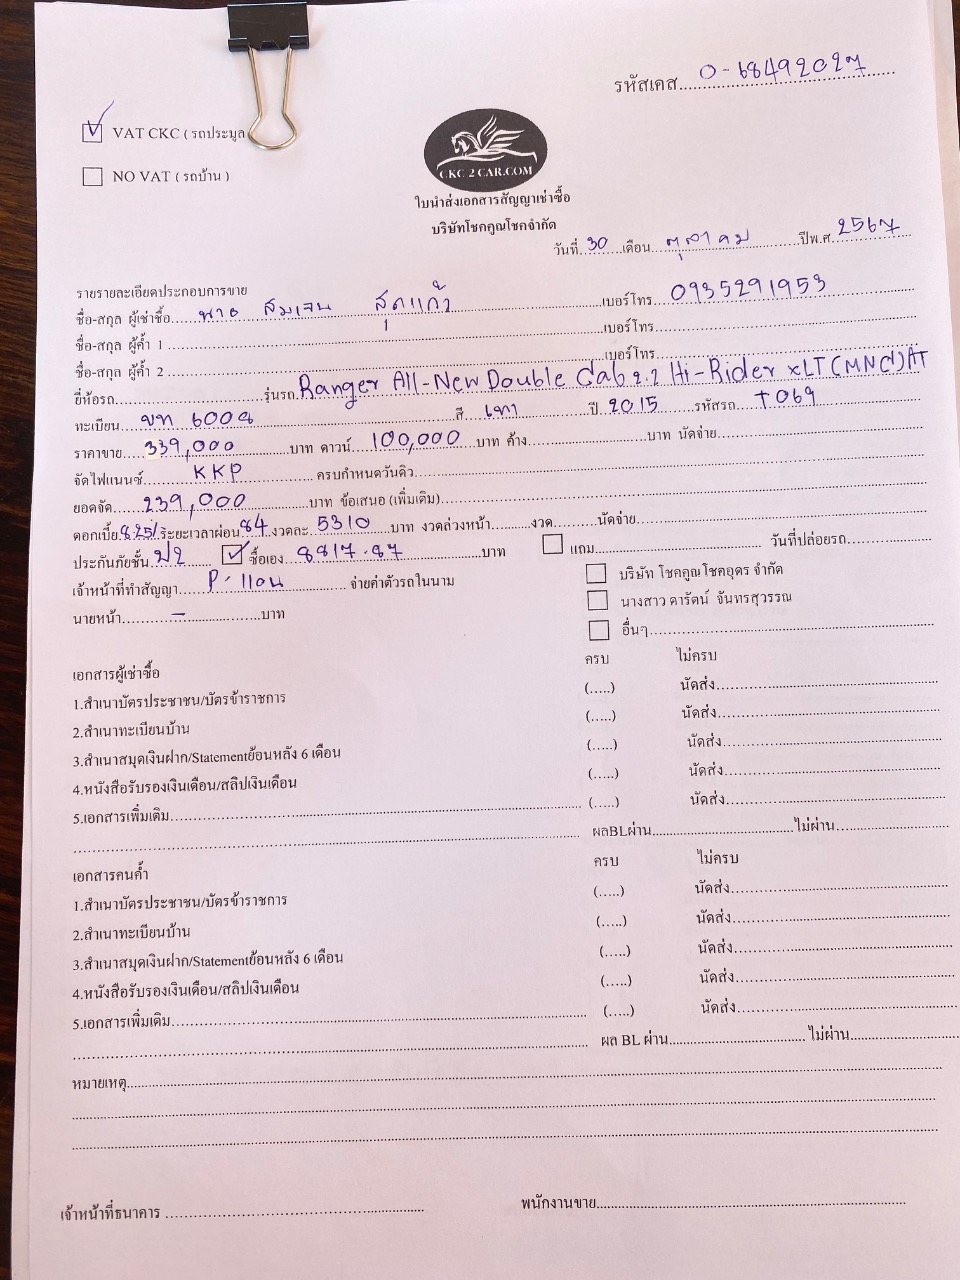 รหัสเคส 0-68492027
VAT CKC ( รถประมูล
NO VAT ( รถบ้าน )
CKC 2 CAR.COM
ใบนำส่งเอกสารสัญญาเช่าซื้อ
บริษัทโชคคูณโชคจำกัด
วันที่ 30 เดือน ตุลาคม ปีพ.ศ. 2567
รายรายละเอียดประกอบการขาย
ชื่อ-สกุล ผู้เช่าซื้อ นาย สมเจน สุดแก้ว เบอร์โทร 0935291953
ชื่อ-สกุล ผู้ค้ำ 1 เบอร์โทร
ชื่อ-สกุล ผู้ค้ำ 2 เบอร์โทร
ยี่ห้อรถ รุ่นรถ Ranger All-New Double Cab 2.2 Hi-Rider XLT (MNC) AT
ทะเบียน 6008 สี เทา ปี 2015 รหัสรถ T069
ราคาขาย 339,000 บาท ดาวน์ 100,000 บาท ค้าง บาท นัดจ่าย
จัดไฟแนนซ์ KKP ครบกำหนดวันคิว
ยอดจัด 239,000 บาท ข้อเสนอ (เพิ่มเติม)
ดอกเบี้ย 8.25% ระยะเวลาผ่อน 84 งวดละ 5310 บาท งวดล่วงหน้า งวด นัดจ่าย
ประกันภัยชั้น ป2 ซื้อเอง 8817.87 บาท แถม วันที่ปล่อยรถ
เจ้าหน้าที่ทำสัญญา P'แอน จ่ายค่าตัวรถในนาม บริษัท โชคคูณโชคอุดร จำกัด
นายหน้า - บาท นางสาว ดารัตน์ จันทรสุวรรณ
อื่นๆ
เอกสารผู้เช่าซื้อ ครบ ไม่ครบ
1.สำเนาบัตรประชาชน/บัตรข้าราชการ (.....) นัดส่ง
2.สำเนาทะเบียนบ้าน (.....) นัดส่ง
3.สำเนาสมุดเงินฝาก/Statementย้อนหลัง 6 เดือน (.....) นัดส่ง
4.หนังสือรับรองเงินเดือน/สลิปเงินเดือน (.....) นัดส่ง
5.เอกสารเพิ่มเติม (.....) นัดส่ง
ผลBLผ่าน ไม่ผ่าน
เอกสารคนค้ำ ครบ ไม่ครบ
1.สำเนาบัตรประชาชน/บัตรข้าราชการ (.....) นัดส่ง
2.สำเนาทะเบียนบ้าน (.....) นัดส่ง
3.สำเนาสมุดเงินฝาก/Statementย้อนหลัง 6 เดือน (.....) นัดส่ง
4.หนังสือรับรองเงินเดือน/สลิปเงินเดือน (.....) นัดส่ง
5.เอกสารเพิ่มเติม (.....) นัดส่ง
ผล BL ผ่าน ไม่ผ่าน
หมายเหตุ
เจ้าหน้าที่ธนาคาร พนักงานขาย